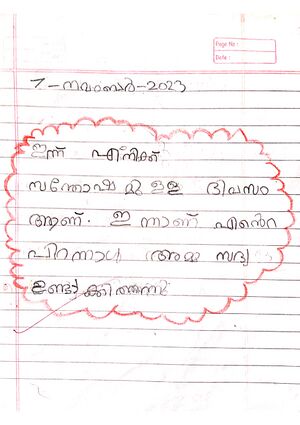 Page No :
Date :
7-നവംബർ-2023
ഇന്ന് എനിക്ക്
സന്തോഷ മുള്ള ദിവസം
ആണ്. ഇന്നാണ് എന്റെ
പിറന്നാൾ അമ്മ സദ്യ
ഉണ്ടാക്കിത്തന്നു